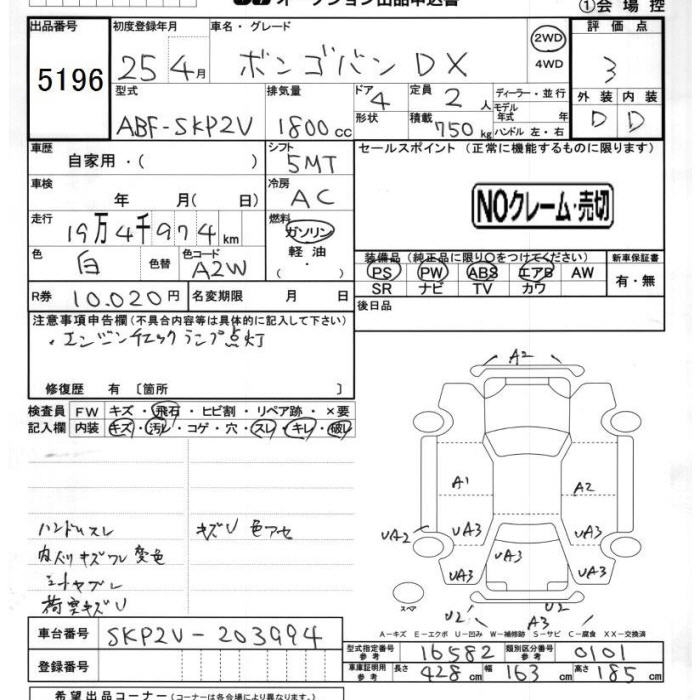 オークション出品申込書
①会場控
出品番号 初度登録年月 車名・グレード 評価点
5196 25年4月 ボンゴバン DX 2WD 4WD 3
型式 排気量 ドア 定員 ディーラー・並行 外装 内装
ABF-SKP2V 1800cc 4 2人 モデル年式 年 D D
形状 積載 750kg ハンドル 左・右
車歴 シフト セールスポイント(正常に機能するものに限ります)
自家用・( ) 5MT
車検 冷房
年 月( 日) AC NOクレーム・売切
走行 燃料
19万4千974km ガソリン
軽油
・( )
色 色替 色コード 装備品(純正品に限り○をつけてください) 新車保証書
白 A2W PS PW ABS エアB AW 有・無
SR ナビ TV カワ
R券 10.020円 名変期限 月 日 後日品
注意事項申告欄(不具合内容等は具体的に記入して下さい)
・エンジンチェックランプ点灯
修復歴 有〔箇所 〕
検査員 FW キズ・飛石・ヒビ割・リペア跡・×要
記入欄 内装 キズ・汚レ・コゲ・穴・スレ・キレ・破レ
A2
A1 A2
UA2 UA3 UA3
UA3 UA3 UA3
U2 A3 U2
スペア
ハンドルスレ キズU 色アセ
内張りキズワレ変色
シートヤブレ
荷室キズU
A-キズ E-エクボ U-凹み W-補修跡 S-サビ C-腐食 XX-交換済
車台番号 SKP2V-203994
型式指定番号 参考 16582 類別区分番号 参考 0101
登録番号
車庫証明用 参考 長さ 428cm 幅 163cm 高さ 185cm
希望出品コーナー(コーナーは各会場により異なります)